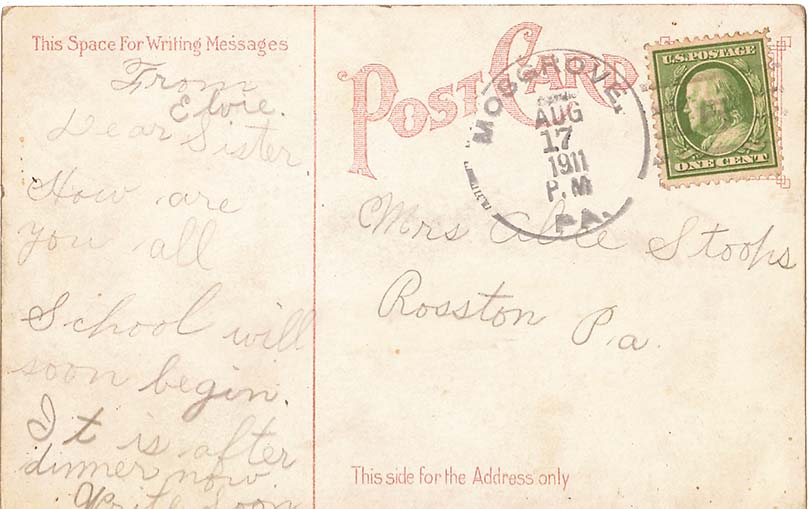 This Space For Writing Messages
From
Elvie.
Dear Sister
How are
you all
School will
soon begin.
It is after
dinner now.
Write Soon
POST CARD
MOSGROVE,
AUG
17
1911
P.M
PA.
U.S. POSTAGE
ONE CENT
Mrs. Alice Stoops
Rosston Pa.
This side for the Address only